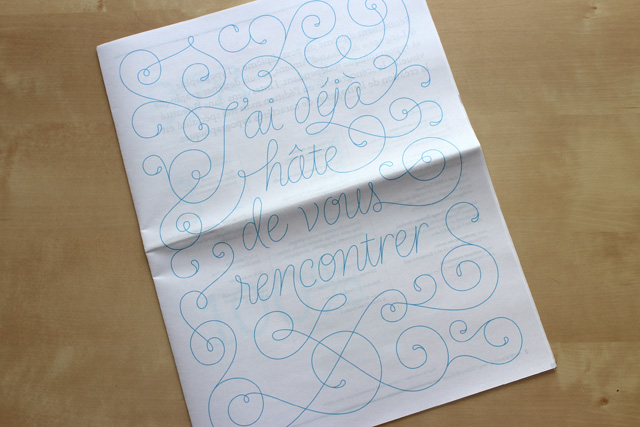 J'ai déjà
hâte
de vous
rencontrer